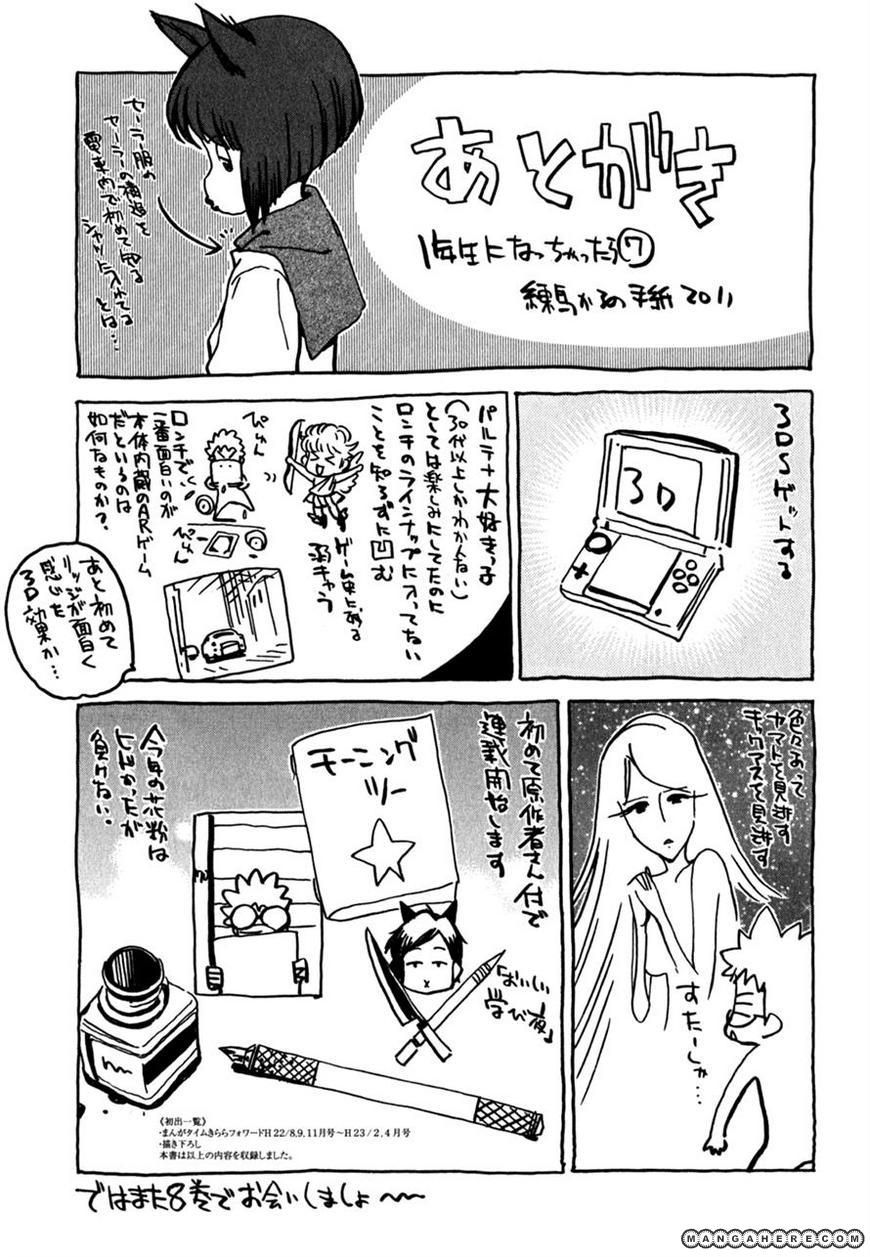 あとがき
1年生になっちゃったら⑦
練馬かるの手紙 2011
セーラー服の
セーラーの構造を
電車内で初めて知る
シャツに入れてる
とは…
3DSゲットする
3D
パルテナ大好きっ子
(30代以上しかわかんない)
としては楽しみにしてたのに
ロンチのラインナップに入ってない
ことを知らずに凹む
ゲーム史にある
弱キャラ
ぴゅん
ぴゅん
ロンチで
一番面白いのが
本体内蔵のARゲーム
だというのは
如何なものか?
あと初めて
リッジが面白く
感じた
3D効果か…
色々あって
ヤマトを見逃す
キックアスを見逃す
すたーしゃ…
初めて原作者さん付で
連載開始します
モーニング
ツー
「おいしい
学び夜」
今年の花粉は
ヒドかったが
負けない。
《初出一覧》
・まんがタイムきららフォワードH22/8,9,11月号〜H23/2,4月号
・描き下ろし
本書は以上の内容を収録しました。
ではまた8巻でお会いしましょ〜〜
MANGAHERE.COM